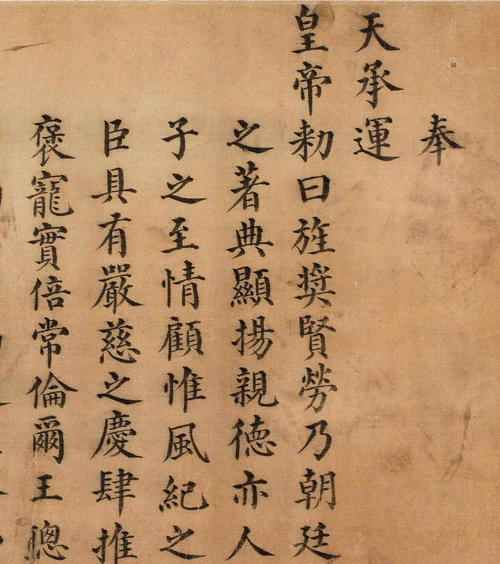 奉
天承運
皇帝勑曰旌奬賢勞乃朝廷
之著典顯揚親德亦人
子之至情顧惟風紀之
臣具有嚴慈之慶肆推
褒寵實倍常倫爾王聰